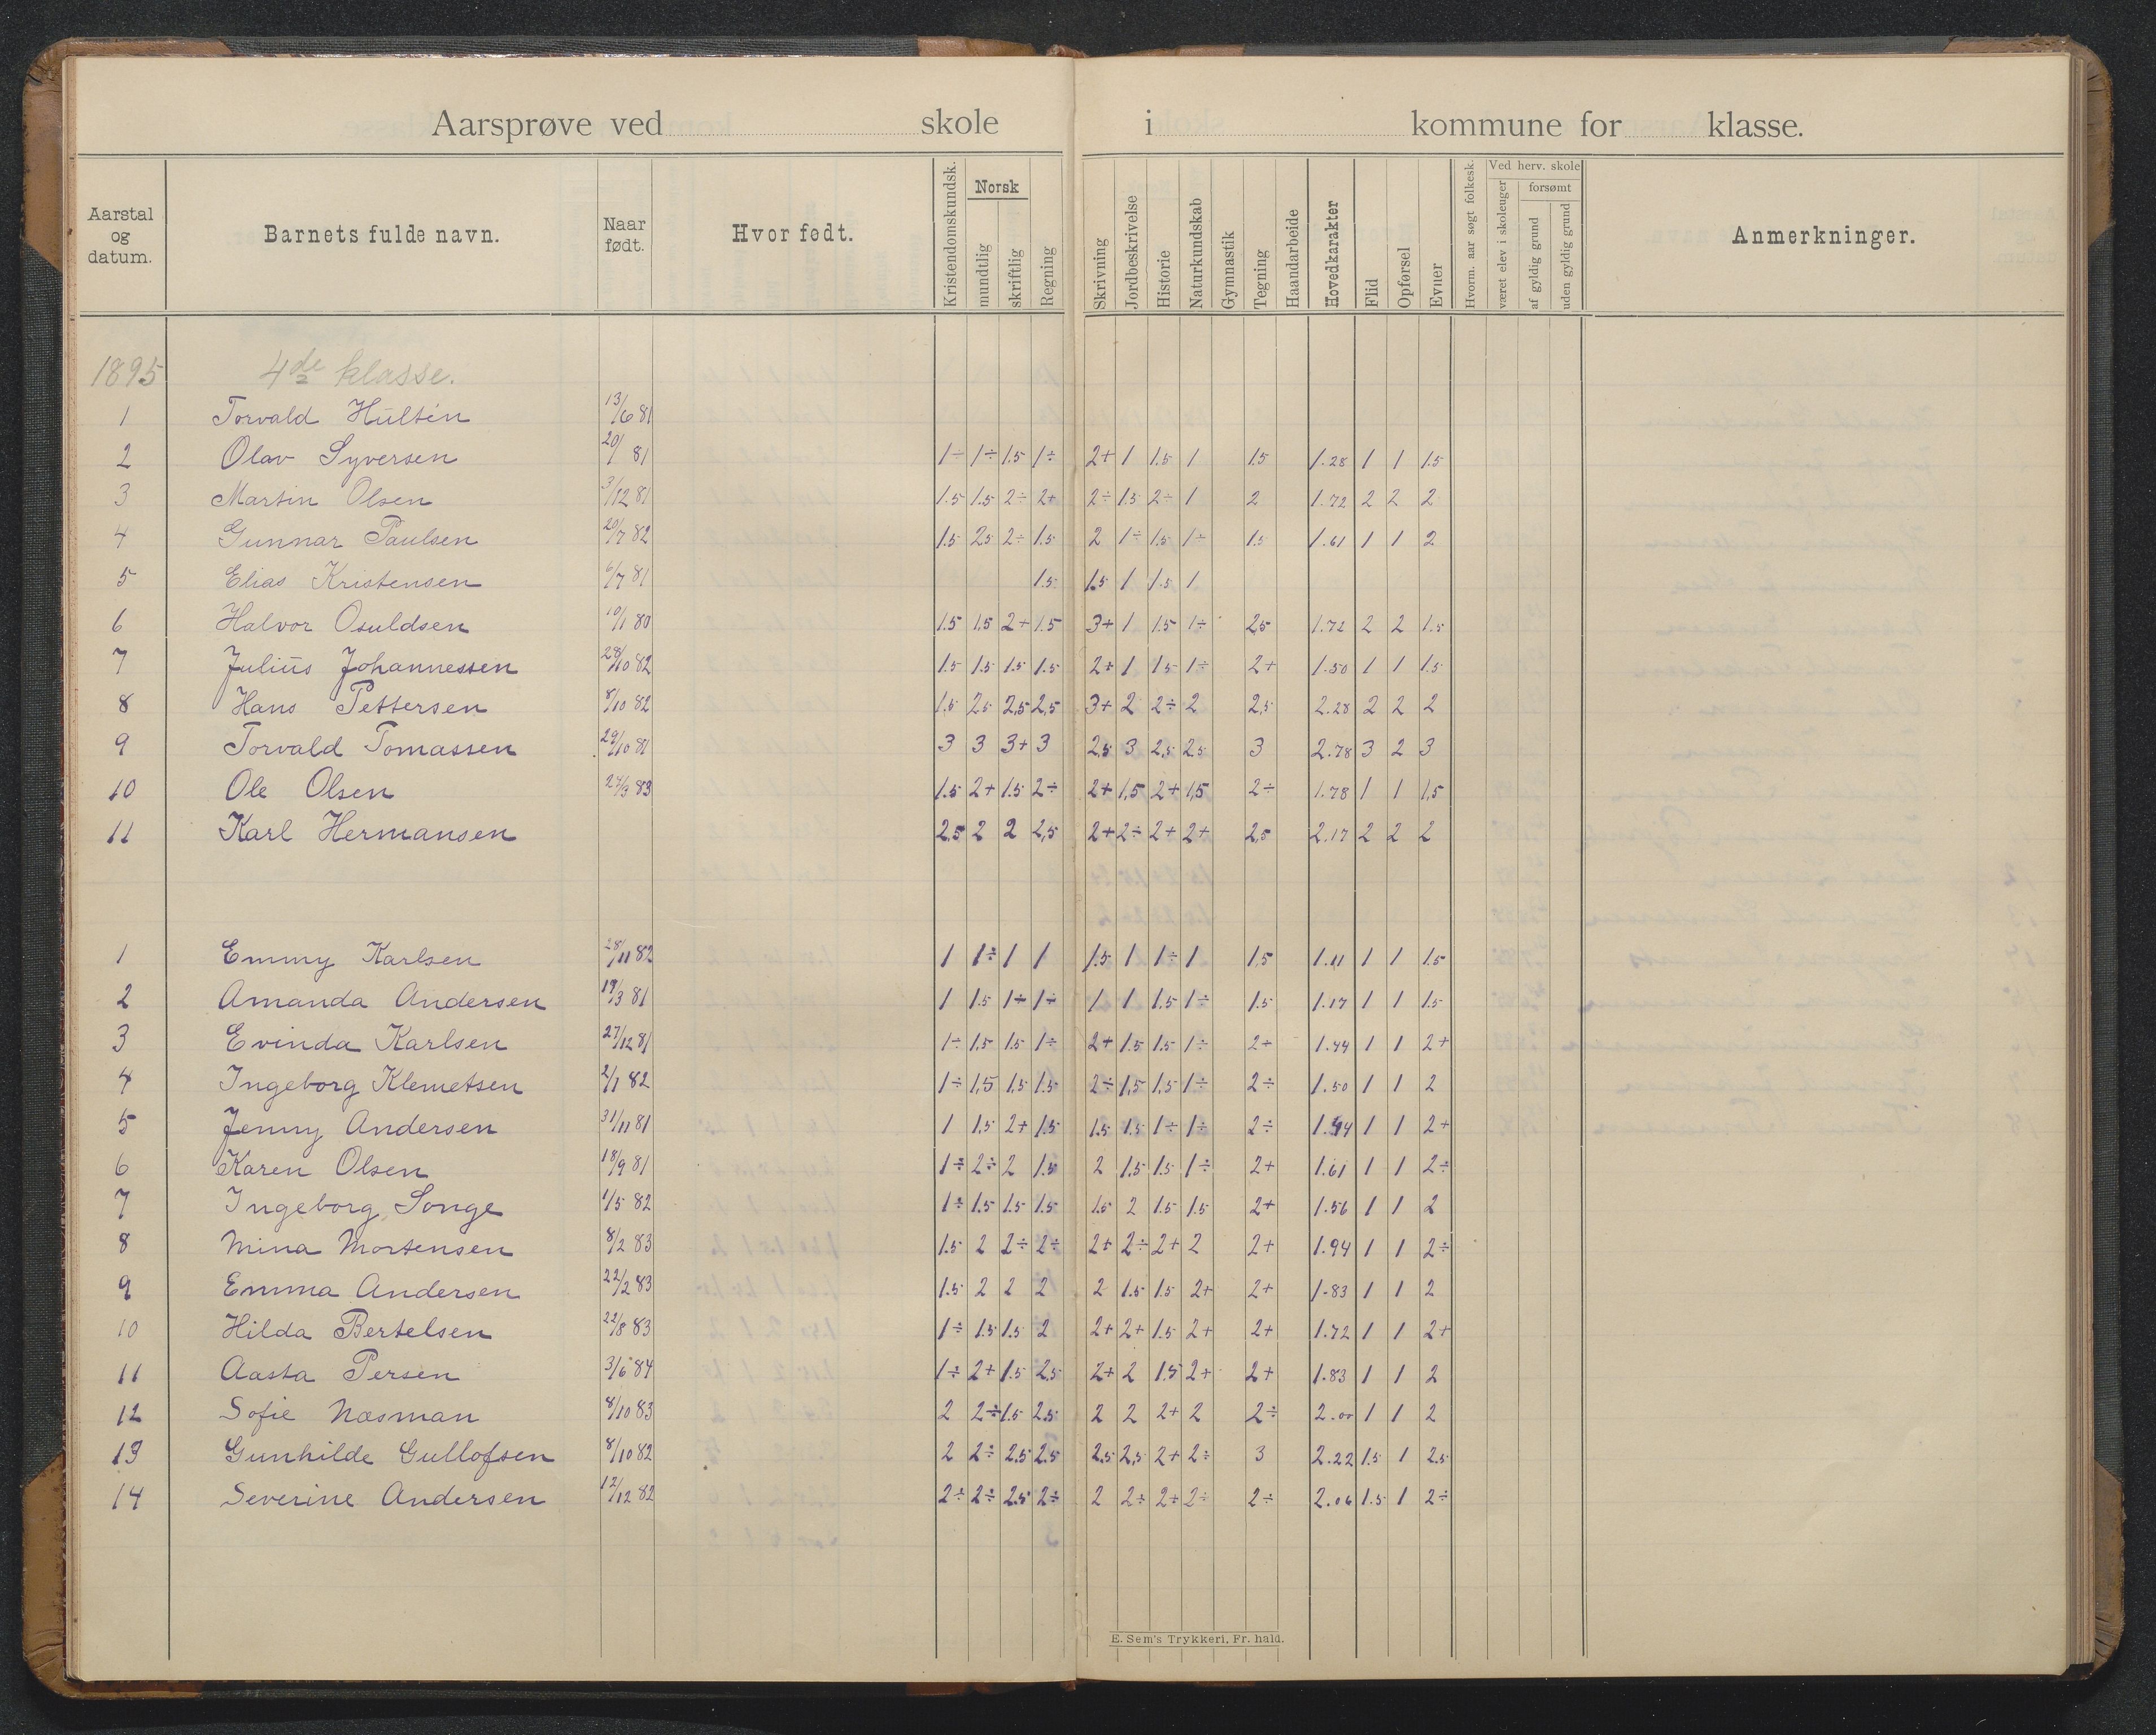 Aarsprøve ved skole i kommune for klasse.
Aarstal og datum. Barnets fulde navn. Naar født. Hvor født. Kristendomskundsk. Norsk mundtlig skriftlig Regning Skrivning Jordbeskrivelse Historie Naturkundskab Gymnastik Tegning Haandarbeide Hovedkarakter Flid Opførsel Evner Hvorm. aar søgt folkesk. Ved herv. skole været elev i skoleuger forsømt af gyldig grund uden gyldig grund Anmerkninger.
1895 4de klasse.
1 Torvald Hultén 13/6 81
2 Olav Syversen 20/ 81 1÷ 1÷ 1.5 1÷ 2+ 1 1.5 1 1.5 1.28 1 1 1.5
3 Martin Olsen 3/12 81 1.5 1.5 2÷ 2+ 2÷ 1.5 2÷ 1 2 1.72 2 2 2
4 Gunnar Paulsen 20/7 82 1.5 2.5 2÷ 1.5 2 1÷ 1.5 1÷ 1.5 1.61 1 1 2
5 Elias Kristensen 6/7 81 1.5 1.5 1 1.5 1
6 Halvor Osuldsen 10/1 80 1.5 1.5 2+ 1.5 3+ 1 1.5 1÷ 2,5 1.72 2 2 1.5
7 Julius Johannessen 28/10 82 1.5 1.5 1.5 1.5 2+ 1 1.5 1÷ 2+ 1.50 1 1 1.5
8 Hans Pettersen 8/10 82 1.5 2.5 2,5 2,5 3+ 2 2÷ 2 2,5 2.28 2 2 2
9 Torvald Tomassen 29/10 81 3 3 3+ 3 2,5 3 2,5 2.5 3 2.78 3 2 3
10 Ole Olsen 24/3 83 1.5 2+ 1.5 2÷ 2+ 1,5 2+ 1,5 2÷ 1.78 1 1 1,5
11 Karl Hermansen 2.5 2 2 2,5 2+ 2÷ 2+ 2+ 2,5 2.17 2 2 2
1 Emmy Karlsen 28/11 82 1 1÷ 1 1 1.5 1 1÷ 1 1,5 1.11 1 1 1.5
2 Amanda Andersen 19/3 81 1 1.5 1÷ 1÷ 1 1 1.5 1÷ 1.5 1.17 1 1 1.5
3 Evinda Karlsen 27/12 81 1÷ 1.5 1.5 1÷ 2+ 1.5 1.5 1÷ 2+ 1.44 1 1 2+
4 Ingeborg Klemetsen 2/1 82 1÷ 1,5 1,5 1.5 2÷ 1,5 1,5 1÷ 2÷ 1.50 1 1 2
5 Jenny Andersen 31/11 81 1 1.5 2+ 1.5 1.5 1.5 1÷ 1÷ 2÷ 1.44 1 1 2+
6 Karen Olsen 18/9 81 1÷ 2÷ 2 1.5 2 1.5 1.5 1÷ 2+ 1.61 1 1 2÷
7 Ingeborg Songe 1/5 82 1÷ 1.5 1.5 1.5 1.5 2 1.5 1.5 2+ 1.56 1 1 2
8 Mina Mortensen 8/2 83 1.5 2 2÷ 2÷ 2+ 2÷ 2+ 2 2+ 1.94 1 1 2÷
9 Emma Andersen 22/2 83 1.5 2 2 2 2 1.5 1.5 2+ 2+ 1.83 1 1 2
10 Hilda Bertelsen 22/8 83 1÷ 1.5 1.5 2 2+ 2+ 1.5 2+ 2+ 1.72 1 1 2+
11 Aasta Persen 3/6 84 1÷ 2+ 1.5 2,5 2+ 2 1.5 2+ 2+ 1.83 1 1 2
12 Sofie Næsman 8/10 83 2 2÷ 1.5 2.5 2 2 2+ 2 2÷ 2.00 1 1 2
13 Gunhilde Gullofsen 8/10 82 2 2÷ 2.5 2.5 2.5 2,5 2+ 2÷ 3 2.22 1.5 1 2.5
14 Severine Andersen 12/12 82 2÷ 2÷ 2.5 2÷ 2 2÷ 2+ 2÷ 2÷ 2.06 1.5 1 2÷
E. Sem's Trykkeri, Fr.hald.